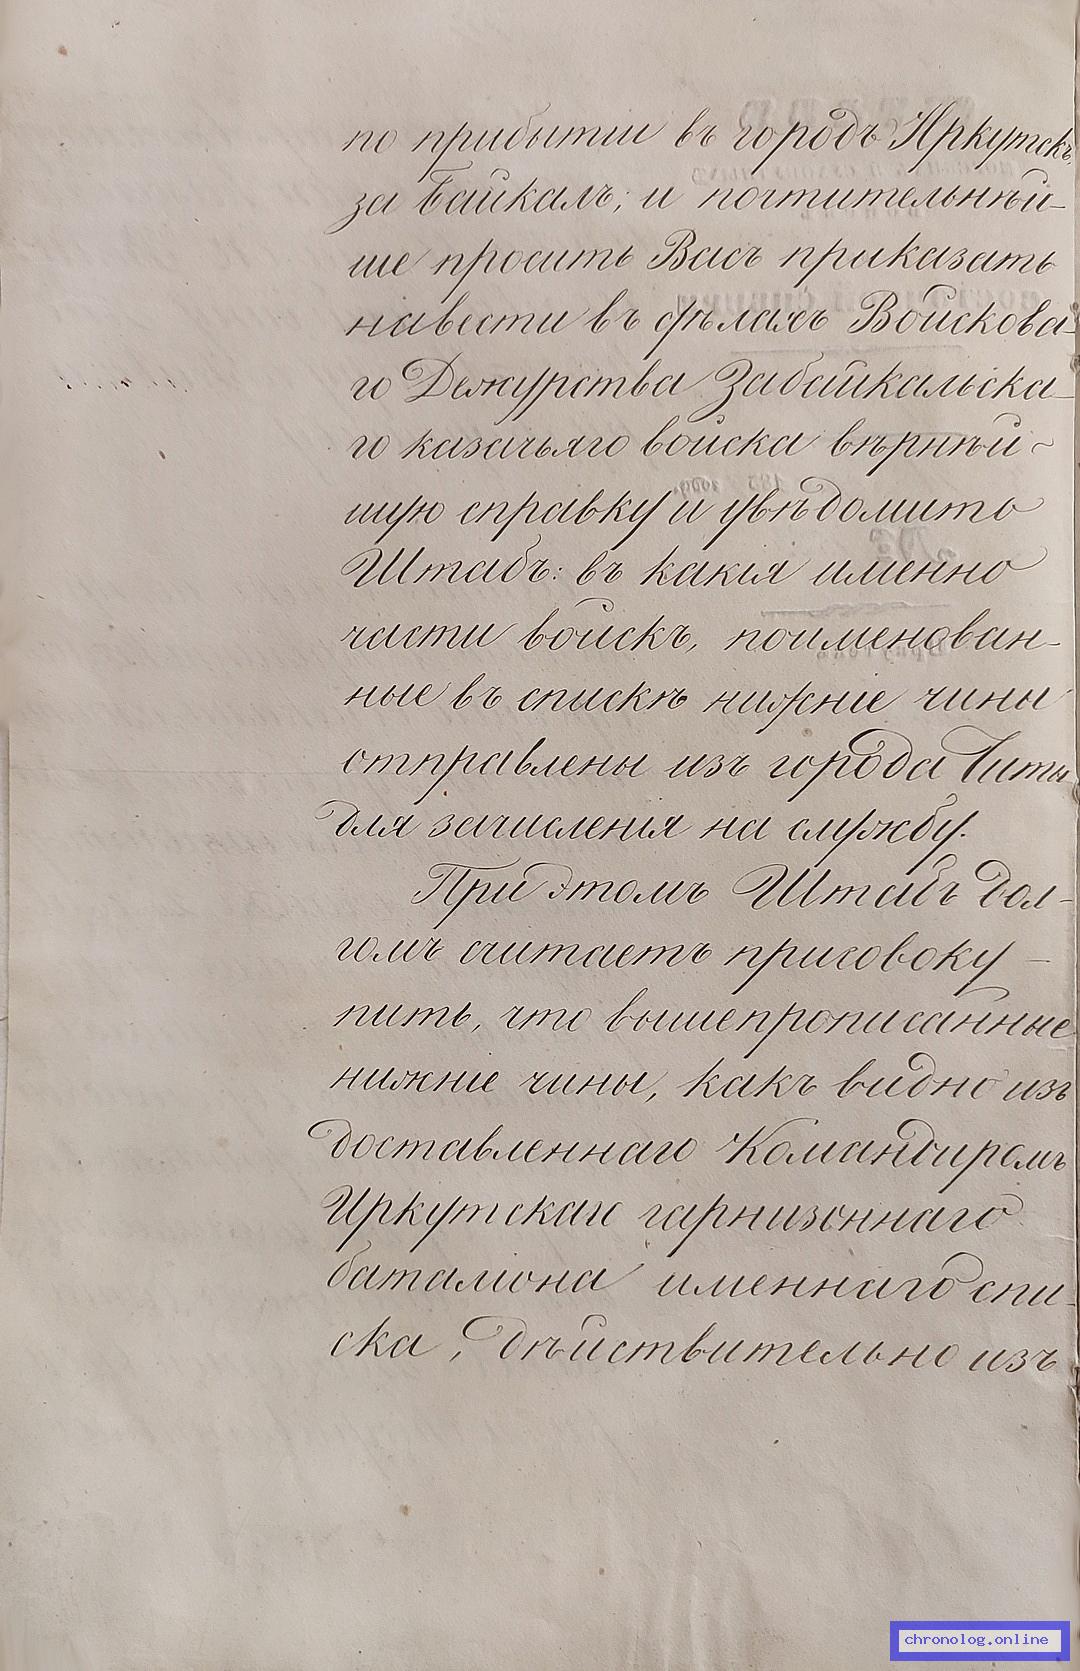 по прибытіи въ городъ Иркутскъ,
за Байкалъ; и почтительнѣй-
ше просить Васъ приказать
навести въ дѣлахъ Войскова-
го Дежурства Забайкальска-
го казачьяго войска вѣрнѣй-
шую справку и увѣдомить
Штабъ: въ какія именно
части войскъ, поименован-
ные въ спискѣ нижніе чины
отправлены изъ города Читы
для зачисленія на службу.
При этомъ Штабъ дол-
гомъ считаетъ присовоку-
пить, что вышепрописанные
нижніе чины, какъ видно изъ
доставленнаго Командиромъ
Иркутскаго гарнизоннаго
баталіона именнаго спи-
ска, дѣйствительно изъ
chronolog.online